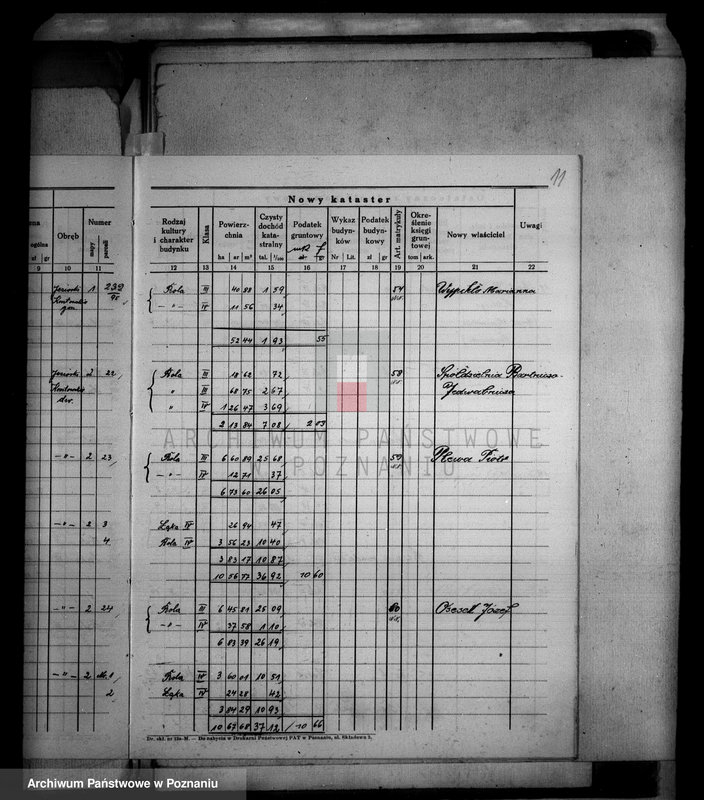 11
Nowy kataster
ogólna
zł gr
Obręb
Numer
mapy parceli
Rodzaj kultury i charakter budynku
Klasa
Powierzchnia
ha ar m²
Czysty dochód katastralny
tal. 1/100
Podatek gruntowy
Wykaz budynków
Nr Lit.
Podatek budynkowy
zł gr
Art. matrykuły
Określenie księgi gruntowej
tom ark.
Nowy właściciel
Uwagi
9 10 11 12 13 14 15 16 17 18 19 20 21 22
1 239 Rola III 40 88 1 59 54 Wypchło Marianna
95 -"- IV 11 56 34
52 44 1 93 55
2 22 Rola III 18 62 72 58 Spółdzielnia
" III 68 75 2 67
" IV 1 26 47 3 69
2 13 84 7 08 2 03
ARCHIWUM PAŃSTWOWE
W POZNANIU
-"- 2 23 Rola III 6 60 89 25 68 59 Plewa Piotr
-"- IV 12 71 37
6 73 60 26 05
-"- 2 3 Łąka IV 26 94 47
4 Rola IV 3 56 23 10 40
3 83 17 10 87
10 56 77 36 92 10 60
-"- 2 24 Rola III 6 45 81 25 09 60 Józef
-"- IV 37 58 1 10
6 83 39 26 19
-"- 2 1 Rola IV 3 60 01 10 51
2 Łąka IV 24 28 42
3 84 29 10 93
10 67 68 37 12 10 66
Dr. skł. nr 12a-M. — Do nabycia w Drukarni Państwowej PAT w Poznaniu, ul. Składowa 2.
Archiwum Państwowe w Poznaniu